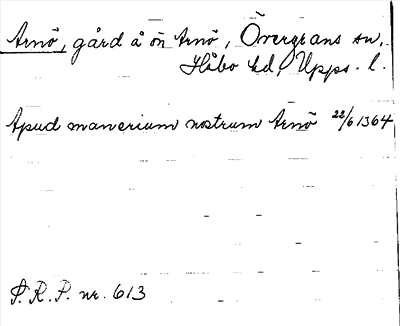 Arnö, gård å ön Arnö, Övergrans sn,
Håbo hd, Upps. l.
Apud manerium nostrum Arnö 22/6 1364
S.R.P. nr. 613